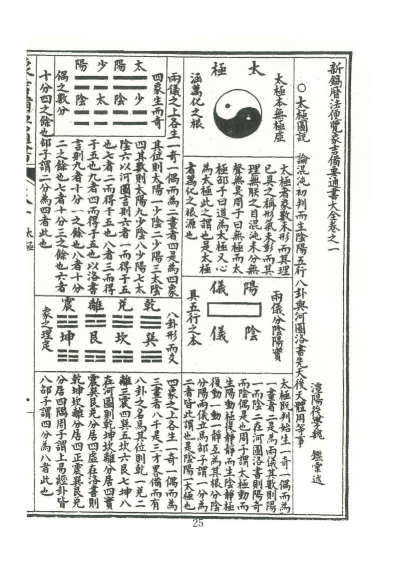 新鐫曆法便覽象吉備要通書大全卷之一
潭陽後學魏 鑑彙述
○太極圖說 論混沌初判而生陰陽五行八卦與河圖洛書先天後天體用等事
太極
太極本無極虛
涵萬化之根
太極者象數未形而其理
已具之稱形氣未彰而其
理無朕之目混沌未分無
聲無臭周子曰無極而太
極邵子曰道為太極又心
為太極此之謂也是太極
者萬化之根源也
陽儀
陰儀
兩儀分陰陽實
具五行之本
太極既判始生一奇一偶而為
一畫者二是為兩儀其數則陽
一而陰二在河圖洛書則陽奇
而陰偶是也周子謂太極動而
生陽動極復靜靜而生陰靜極
復動一動一靜互為其根分陰
分陽兩儀立焉邵子謂一分為
二者皆此謂也是陰陽一太極也
太陽 少陰
少陽 太陰
四象生而奇
偶之數分
兩儀之上各生一奇一偶而為二畫者四是為四象
其位則太陽一少陰二少陽三太陰
四其數則太陽九少陰八少陽七太
陰六以河圖言則六者一而得于五
也七者二而得于五也八者三而得
于五也九者四而得于五也以洛書
言則九者十分一之餘也八者十分
二之餘也七者十分三之餘也六者
十分四之餘也邵子謂二分為四者此也
乾 兌 離 震
巽 坎 艮 坤
八卦形而爻
象之理定
四象之上各生一奇一偶而為
三畫者八于是三才畧備而有
八卦之名焉其位則乾一兌二
離三震四巽五坎六艮七坤八
在河圖則乾坤坎離分居四實
震巽艮兌分居四虛在洛書則
乾坤坎離分居四正震巽艮兌
分居四隅周子謂上易經卦皆
八邵子謂四分為八者此也
25